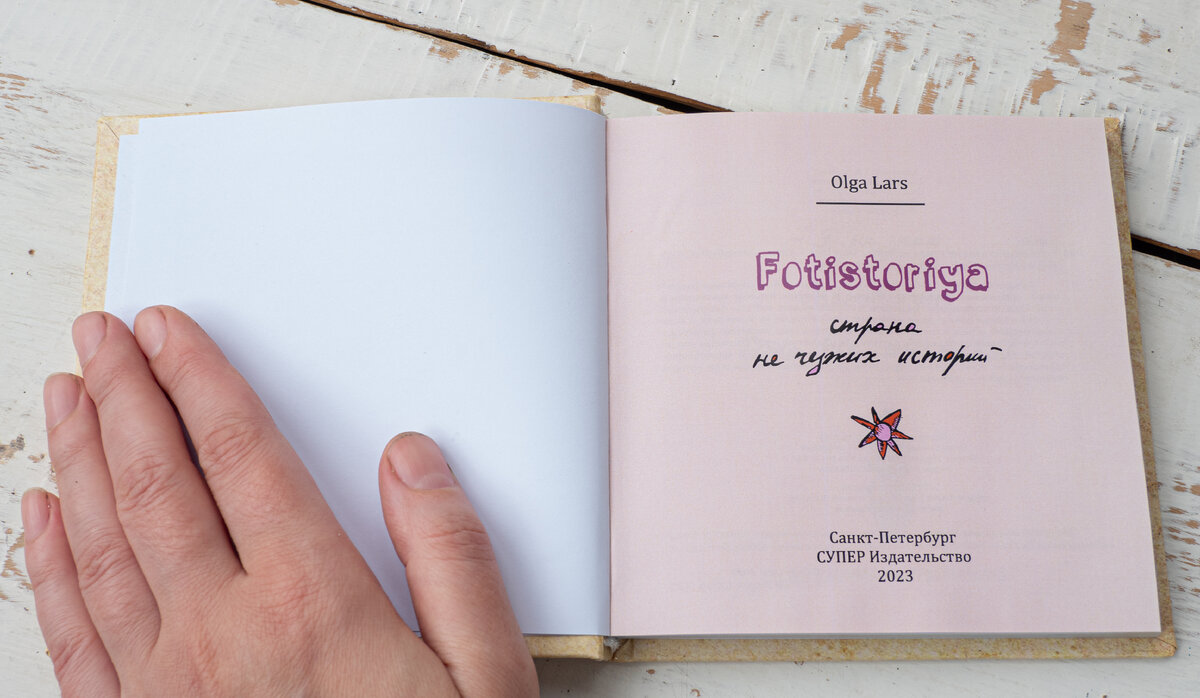 Olga Lars
Fotistoriya
страна
не чужих историй
Санкт-Петербург
СУПЕР Издательство
2023